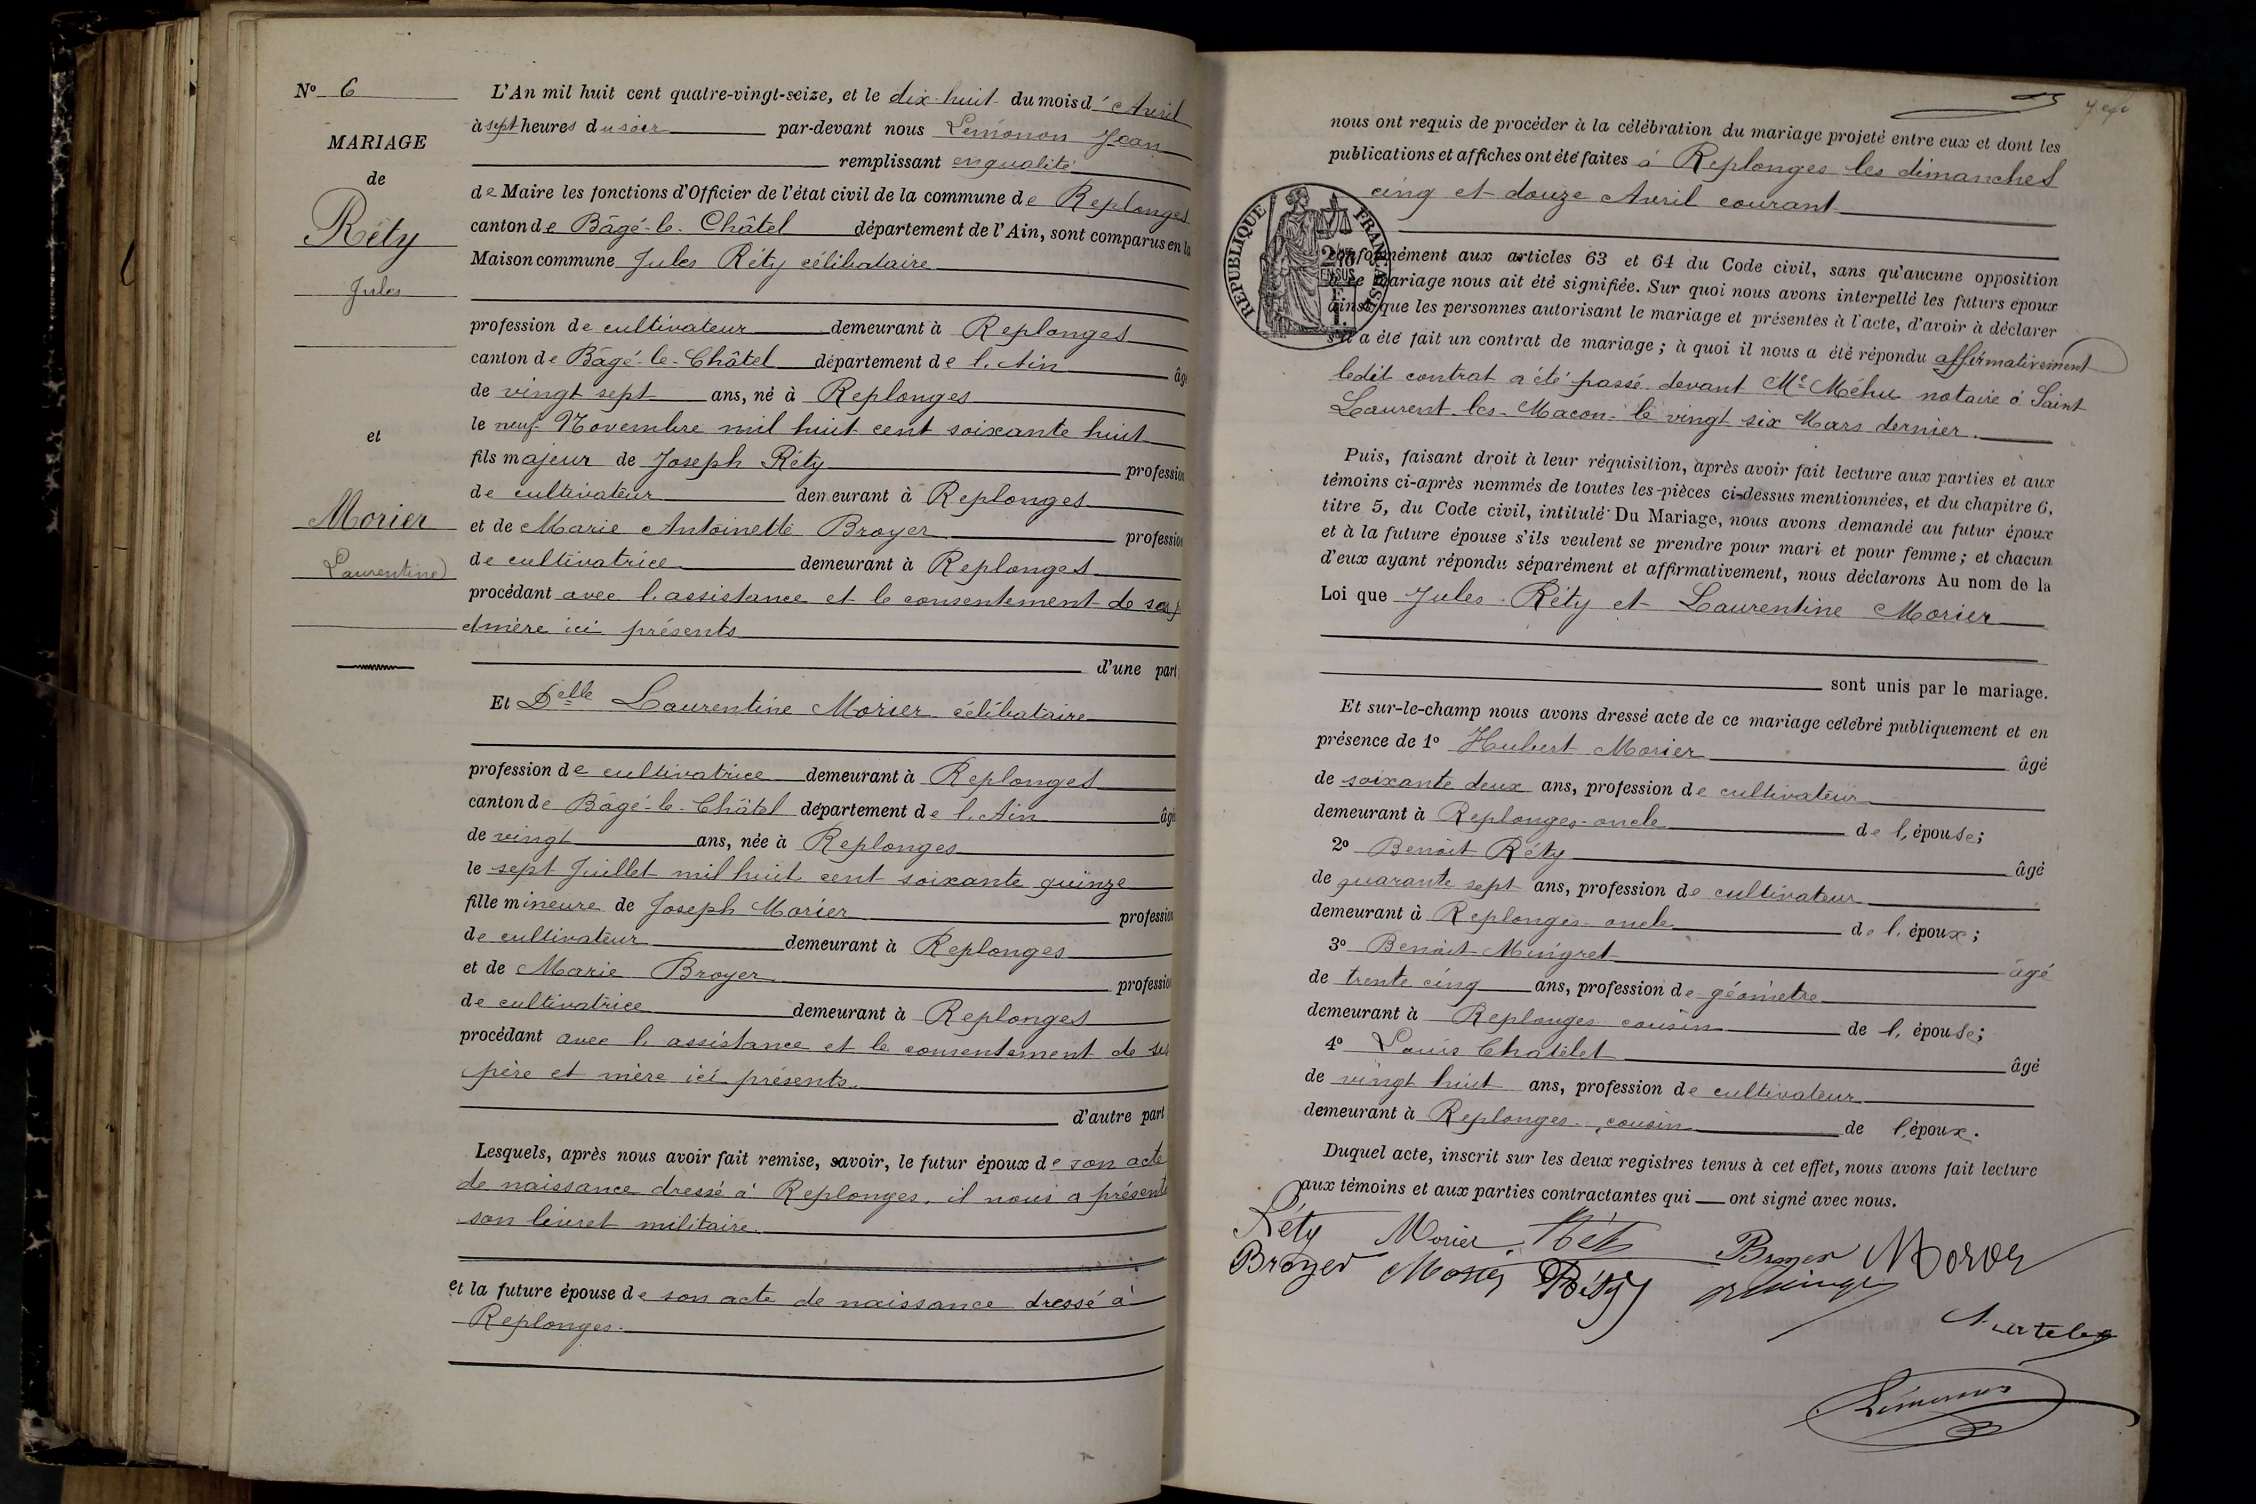 Nº 6
MARIAGE
de
Réty
Jules
et
Morier
Laurentine
L'An mil huit cent quatre-vingt-seize, et le dix-huit du mois d'Avril
à sept heures du soir par-devant nous Lémonon Jean
remplissant en qualité
de Maire les fonctions d'Officier de l'état civil de la commune de Replonges
canton de Bâgé-le-Châtel département de l'Ain, sont comparus en la
Maison commune Jules Réty célibataire
profession de cultivateur demeurant à Replonges
canton de Bâgé-le-Châtel département de l'Ain âgé
de vingt sept ans, né à Replonges
le neuf Novembre mil huit cent soixante huit
fils majeur de Joseph Réty profession
de cultivateur demeurant à Replonges
et de Marie Antoinette Broyer profession
de cultivatrice demeurant à Replonges
procédant avec l'assistance et le consentement de ses p
et mère ici présents
d'une part
Et Delle Laurentine Morier célibataire
profession de cultivatrice demeurant à Replonges
canton de Bâgé-le-Châtel département de l'Ain âgé
de vingt ans, née à Replonges
le sept Juillet mil huit cent soixante quinze
fille mineure de Joseph Morier profession
de cultivateur demeurant à Replonges
et de Marie Broyer profession
de cultivatrice demeurant à Replonges
procédant avec l'assistance et le consentement de ses
père et mère ici présents
d'autre part
Lesquels, après nous avoir fait remise, savoir, le futur époux de son acte
de naissance dressé à Replonges, il nous a présenté
son livret militaire
et la future épouse de son acte de naissance dressé à
Replonges.
nous ont requis de procéder à la célébration du mariage projeté entre eux et dont les
publications et affiches ont été faites à Replonges les dimanches
cinq et douze Avril courant
RÉPUBLIQUE FRANÇAISE
conformément aux articles 63 et 64 du Code civil, sans qu'aucune opposition
à ce mariage nous ait été signifiée. Sur quoi nous avons interpellé les futurs époux
ainsi que les personnes autorisant le mariage et présentes à l'acte, d'avoir à déclarer
s'il a été fait un contrat de mariage ; à quoi il nous a été répondu affirmativement
ledit contrat a été passé devant Me Méhu notaire à Saint
Laurent-les-Macon le vingt six Mars dernier.
Puis, faisant droit à leur réquisition, après avoir fait lecture aux parties et aux
témoins ci-après nommés de toutes les pièces ci-dessus mentionnées, et du chapitre 6,
titre 5, du Code civil, intitulé Du Mariage, nous avons demandé au futur époux
et à la future épouse s'ils veulent se prendre pour mari et pour femme ; et chacun
d'eux ayant répondu séparément et affirmativement, nous déclarons Au nom de la
Loi que Jules Réty et Laurentine Morier
sont unis par le mariage.
Et sur-le-champ nous avons dressé acte de ce mariage célébré publiquement et en
présence de 1º Hubert Morier âgé
de soixante deux ans, profession de cultivateur
demeurant à Replonges oncle de l'épouse ;
2º Benoît Réty âgé
de quarante sept ans, profession de cultivateur
demeurant à Replonges oncle de l'époux ;
3º Benoît Mingret âgé
de trente cinq ans, profession de géomètre
demeurant à Replonges cousin de l'épouse ;
4º Louis Chatelet âgé
de vingt huit ans, profession de cultivateur
demeurant à Replonges cousin de l'époux.
Duquel acte, inscrit sur les deux registres tenus à cet effet, nous avons fait lecture
aux témoins et aux parties contractantes qui ont signé avec nous.
Réty Morier Réty Broyer Morier
Broyer Morier Réty
Lémonon